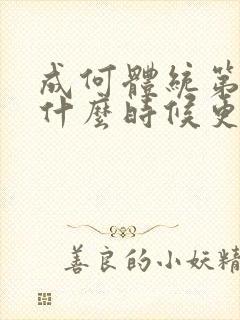 成何體統第
什麼時候更
善良的小妖精